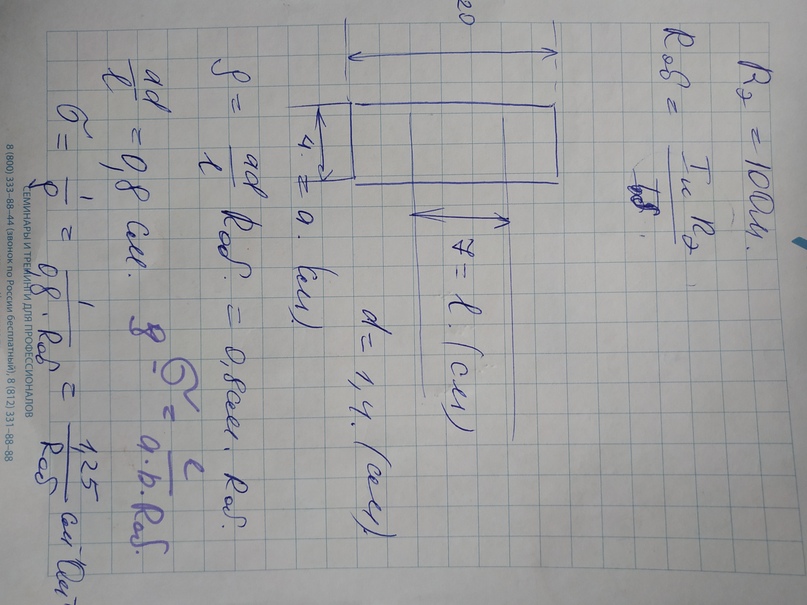 Rэ = 10 Ом.
Rоб = Iк Rэ / Iоб.
20
7 = l. (см)
d = 1,4. (см).
4. = a. (см).
ρ = ad / l Rоб. = 0,8 см. Rоб.
σ = l / a·b·Rоб.
ad / l = 0,8 см.
σ = 1 / ρ = 1 / 0,8 · Rоб = 1,25 / Rоб см⁻¹Ом⁻¹
СЕМИНАРЫ И ТРЕНИНГИ ДЛЯ ПРОФЕССИОНАЛОВ
8 (800) 333–88–44 (звонок по России бесплатный), 8 (812) 331–88–88